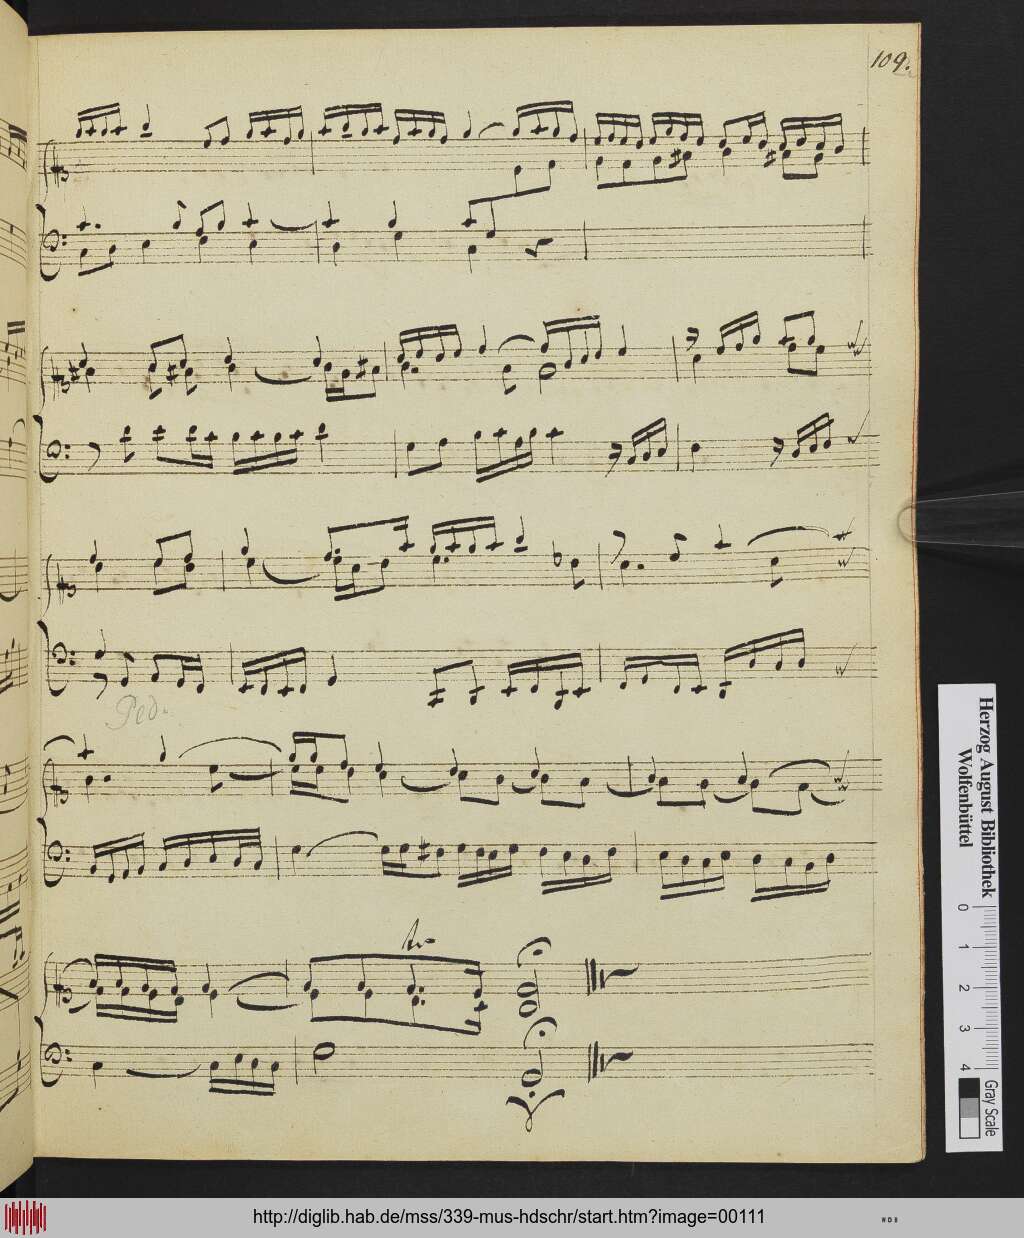 109.
Ped.
tr
Herzog August Bibliothek
Wolfenbüttel
0 1 2 3 4
Gray Scale
http://diglib.hab.de/mss/339-mus-hdschr/start.htm?image=00111